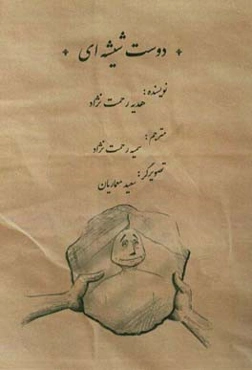 دوست شیشه ای
نویسنده:
هدیه رحمت نژاد
مترجم:
سمیه رحمت نژاد
تصویرگر:
سعید معماریان